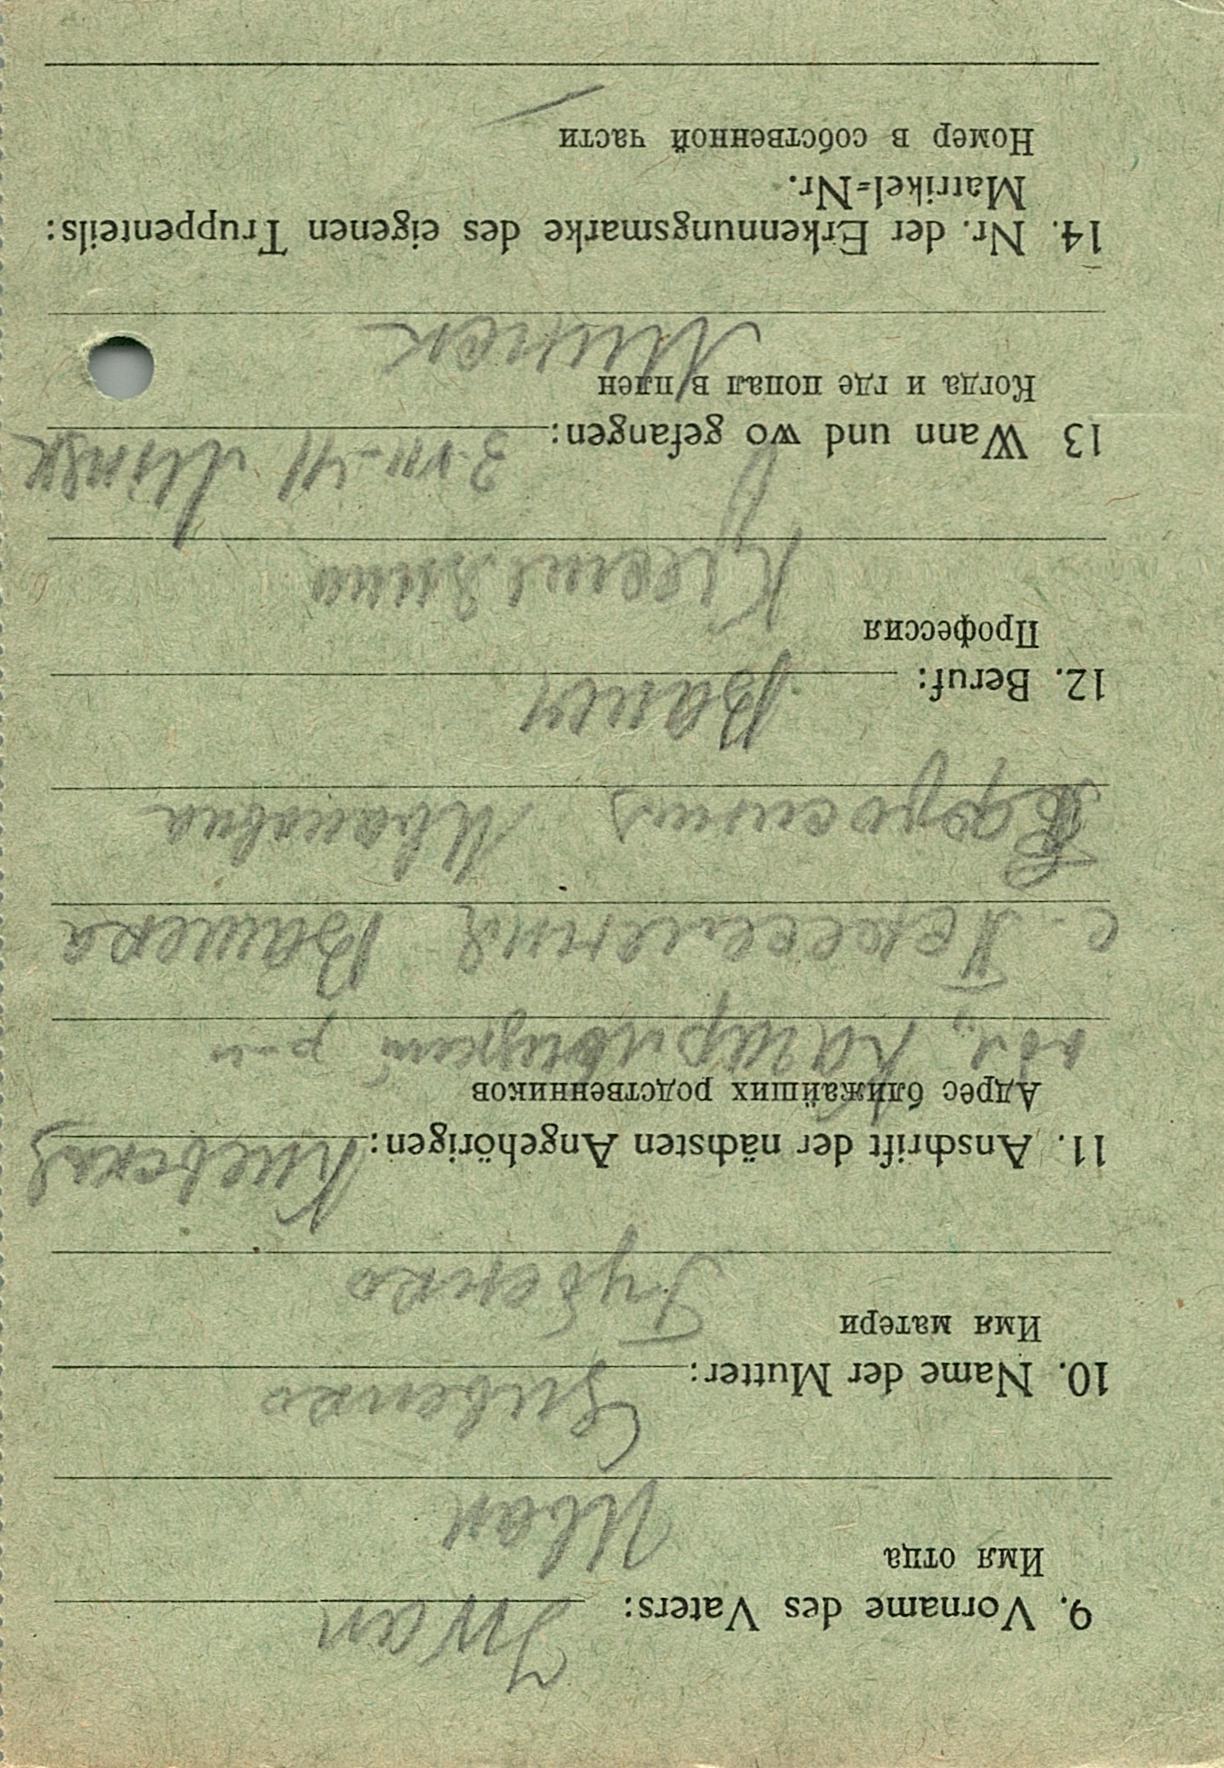 9. Vorname des Vaters: Iwan
Имя отца
Иван
10. Name der Mutter: Gubenko
Имя матери
Губенко
11. Anschrift der nächsten Angehörigen: Киевская
Адрес ближайших родственников
обл, Кагарлыцкий р-н
с. Переселение Вашека
Федосиния Ивановна
12. Beruf: Bauer
Профессия
13 Wann und wo gefangen: 3-VII-41 Minsk
Когда и где попал в плен
Минск
14. Nr. der Erkennungsmarke des eigenen Truppenteils:
Matrikel=Nr.
Номер в собственной части